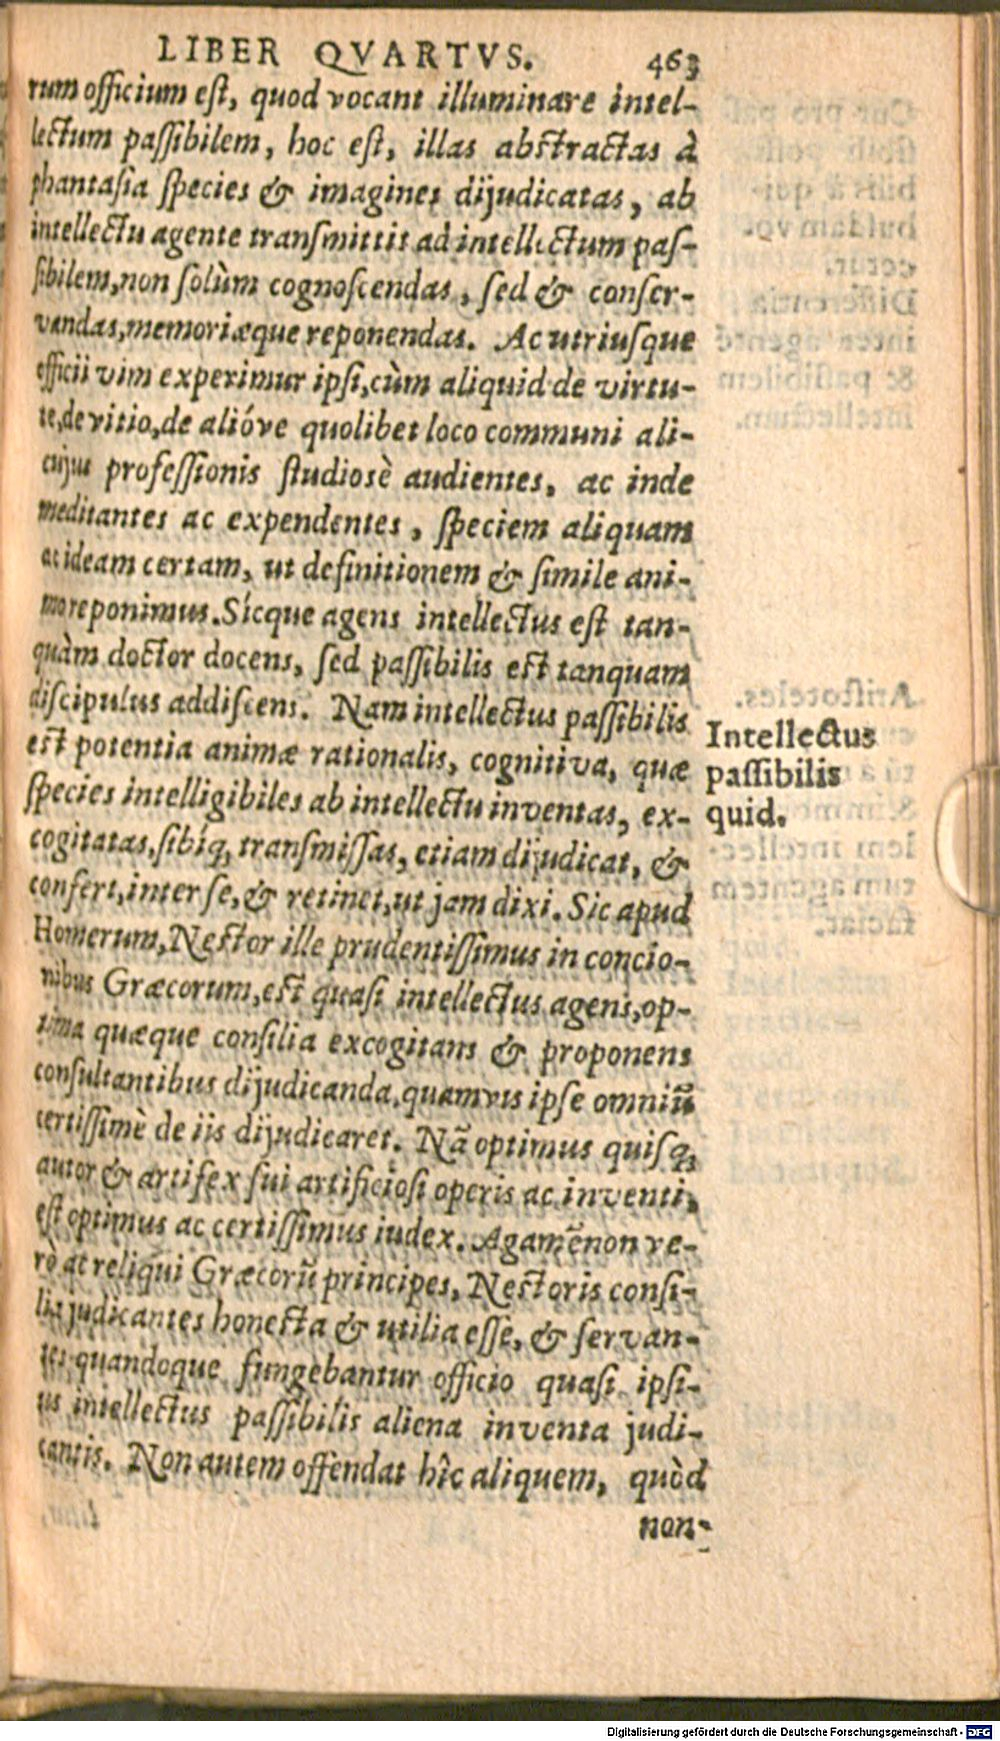 LIBER QVARTVS. 463
rum officium est, quod vocant illuminare intel-
lectum passibilem, hoc est, illas abstractas à
phantasia species & imagines dijudicatas, ab
intellectu agente transmittit ad intellectum pas-
sibilem, non solùm cognoscendas, sed & conser-
vandas, memoriæque reponendas. Ac utriusque
efficii vim experimur ipsi, cùm aliquid de virtu-
te, de vitio, de alióve quolibet loco communi ali-
cujus professionis studiosè audientes, ac inde
meditantes ac expendentes, speciem aliquam
ac ideam certam, ut definitionem & simile ani-
mo reponimus. Sicque agens intellectus est tan-
quàm doctor docens, sed passibilis est tanquam
discipulus addiscens. Nam intellectus passibilis
est potentia animæ rationalis, cognitiva, quæ
species intelligibiles ab intellectu inventas, ex-
cogitatas, sibíq; transmissas, etiam dijudicat, &
confert, inter se, & retinet, ut jam dixi. Sic apud
Homerum, Nestor ille prudentissimus in concio-
nibus Græcorum, est quasi intellectus agens, op-
tima quæque consilia excogitans & proponens
consultantibus dijudicanda, quamvis ipse omniū
certissimè de iis dijudicaret. Nā optimus quisq;
autor & artifex sui artificiosi operis ac inventi,
est optimus ac certissimus iudex. Agamēnon ve-
rò ac reliqui Græcorū principes, Nestoris consi-
lia judicantes honesta & utilia esse, & servan-
tes quandoque fungebantur officio quasi ipsi-
us intellectus passibilis aliena inventa judi-
cantis. Non autem offendat hîc aliquem, quòd
non-
Intellectus
passibilis
quid.
Digitalisierung gefördert durch die Deutsche Forschungsgemeinschaft - DFG